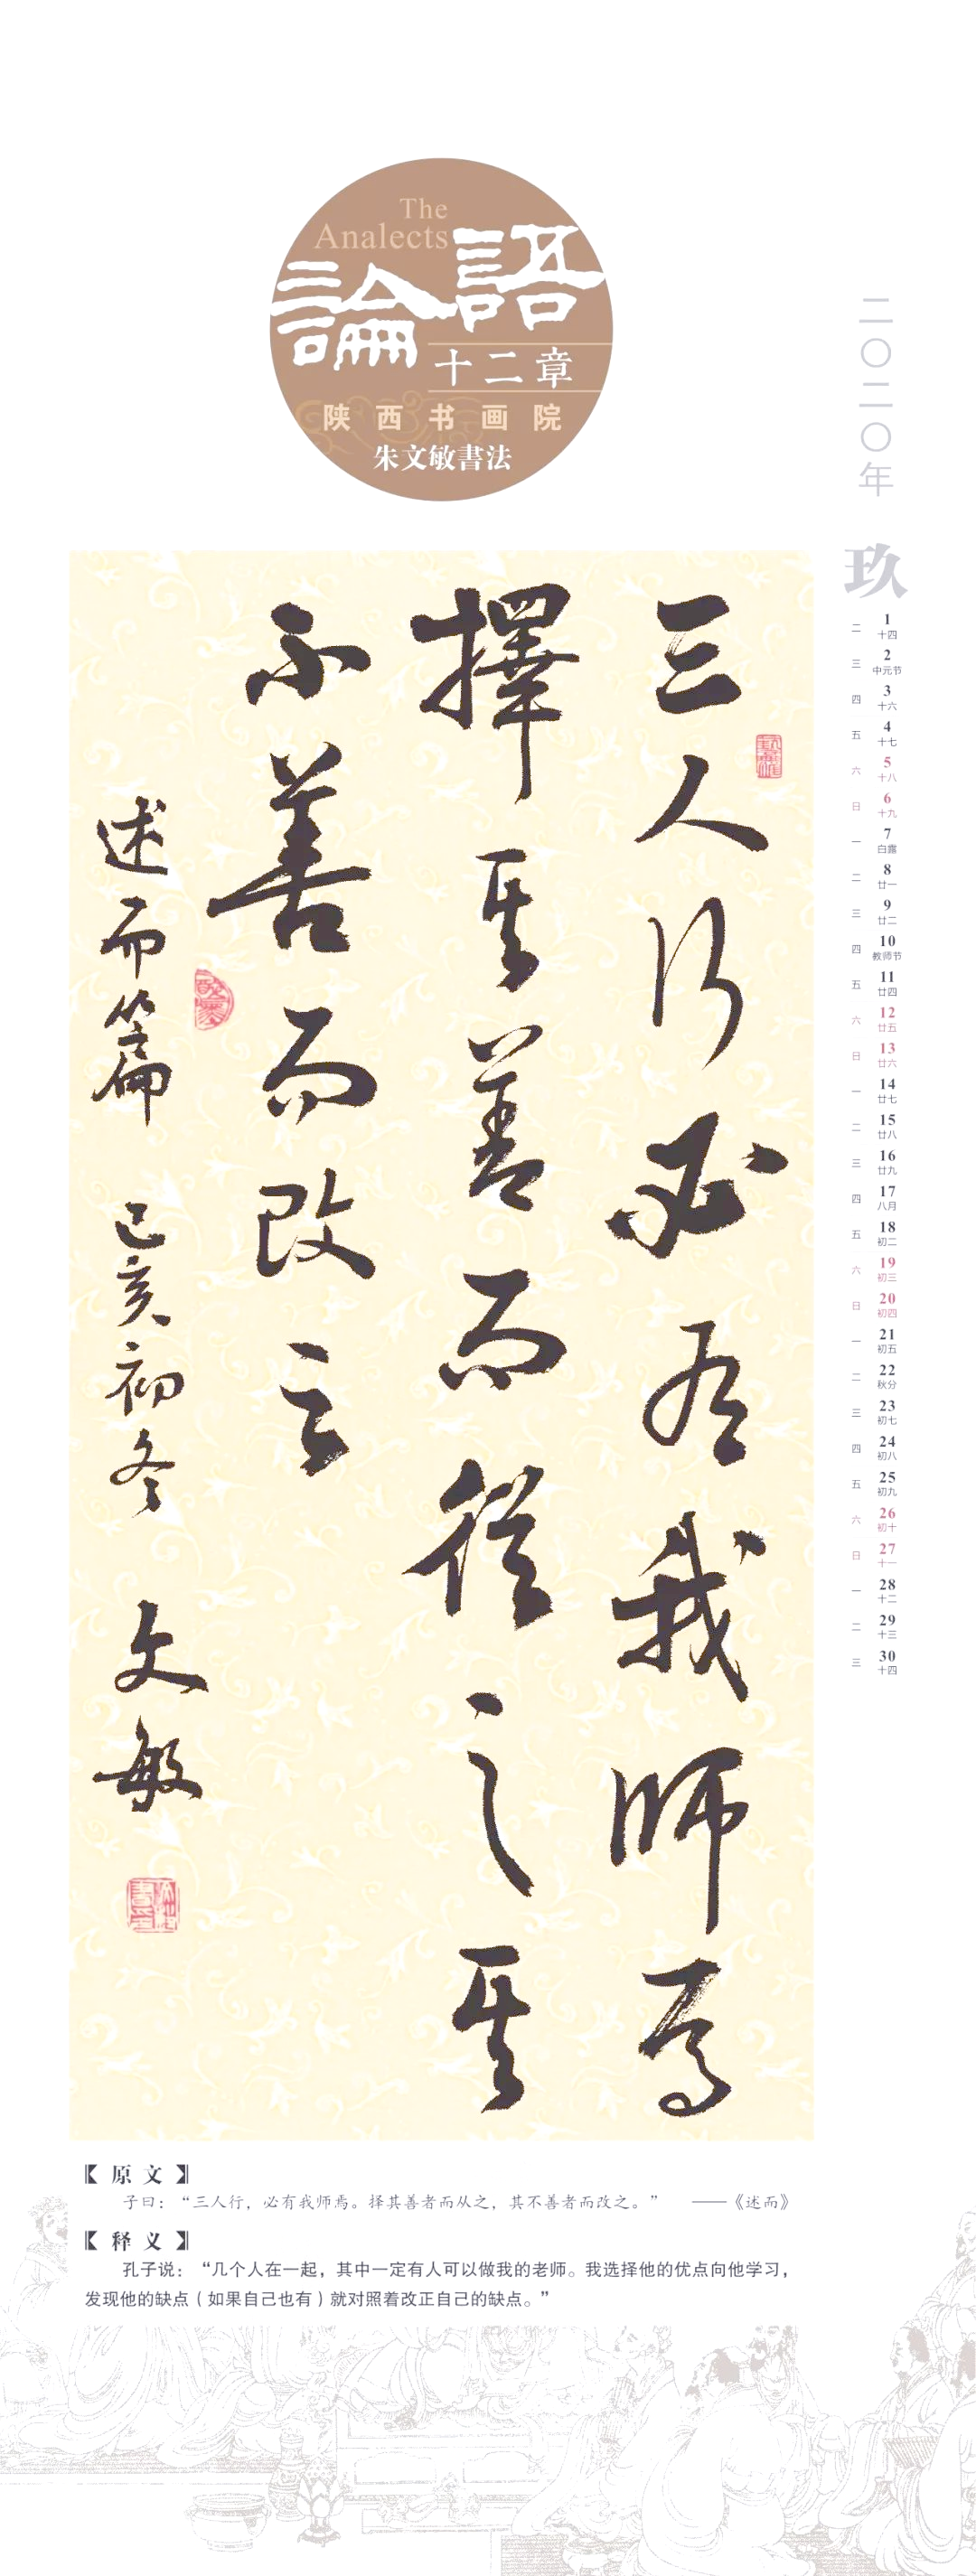 The
Analects
論語
十二章
陕西书画院
朱文敏書法
二〇二〇年
玖
二 1 十四
三 2 中元节
四 3 十六
五 4 十七
六 5 十八
日 6 十九
一 7 白露
二 8 廿一
三 9 廿二
四 10 教师节
五 11 廿四
六 12 廿五
日 13 廿六
一 14 廿七
二 15 廿八
三 16 廿九
四 17 八月
五 18 初二
六 19 初三
日 20 初四
一 21 初五
二 22 秋分
三 23 初七
四 24 初八
五 25 初九
六 26 初十
日 27 十一
一 28 十二
二 29 十三
三 30 十四
三人行必有我师焉
擇其善而從之其
不善而改之
述而篇 己亥初冬 文敏
【原文】
子曰：“三人行，必有我师焉。择其善者而从之，其不善者而改之。” ——《述而》
【释义】
孔子说：“几个人在一起，其中一定有人可以做我的老师。我选择他的优点向他学习，
发现他的缺点（如果自己也有）就对照着改正自己的缺点。”